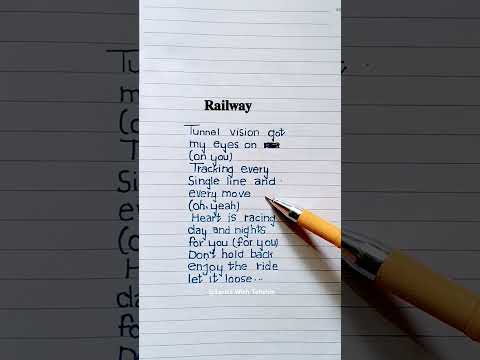 Railway
Tunnel vision got
my eyes on
(on you)
Tracking every
Single line and
every move
(oh, yeah)
Heart is racing
day and nights
for you (for you)
Don't hold back
enjoy the ride
let it loose...
Lyrics With